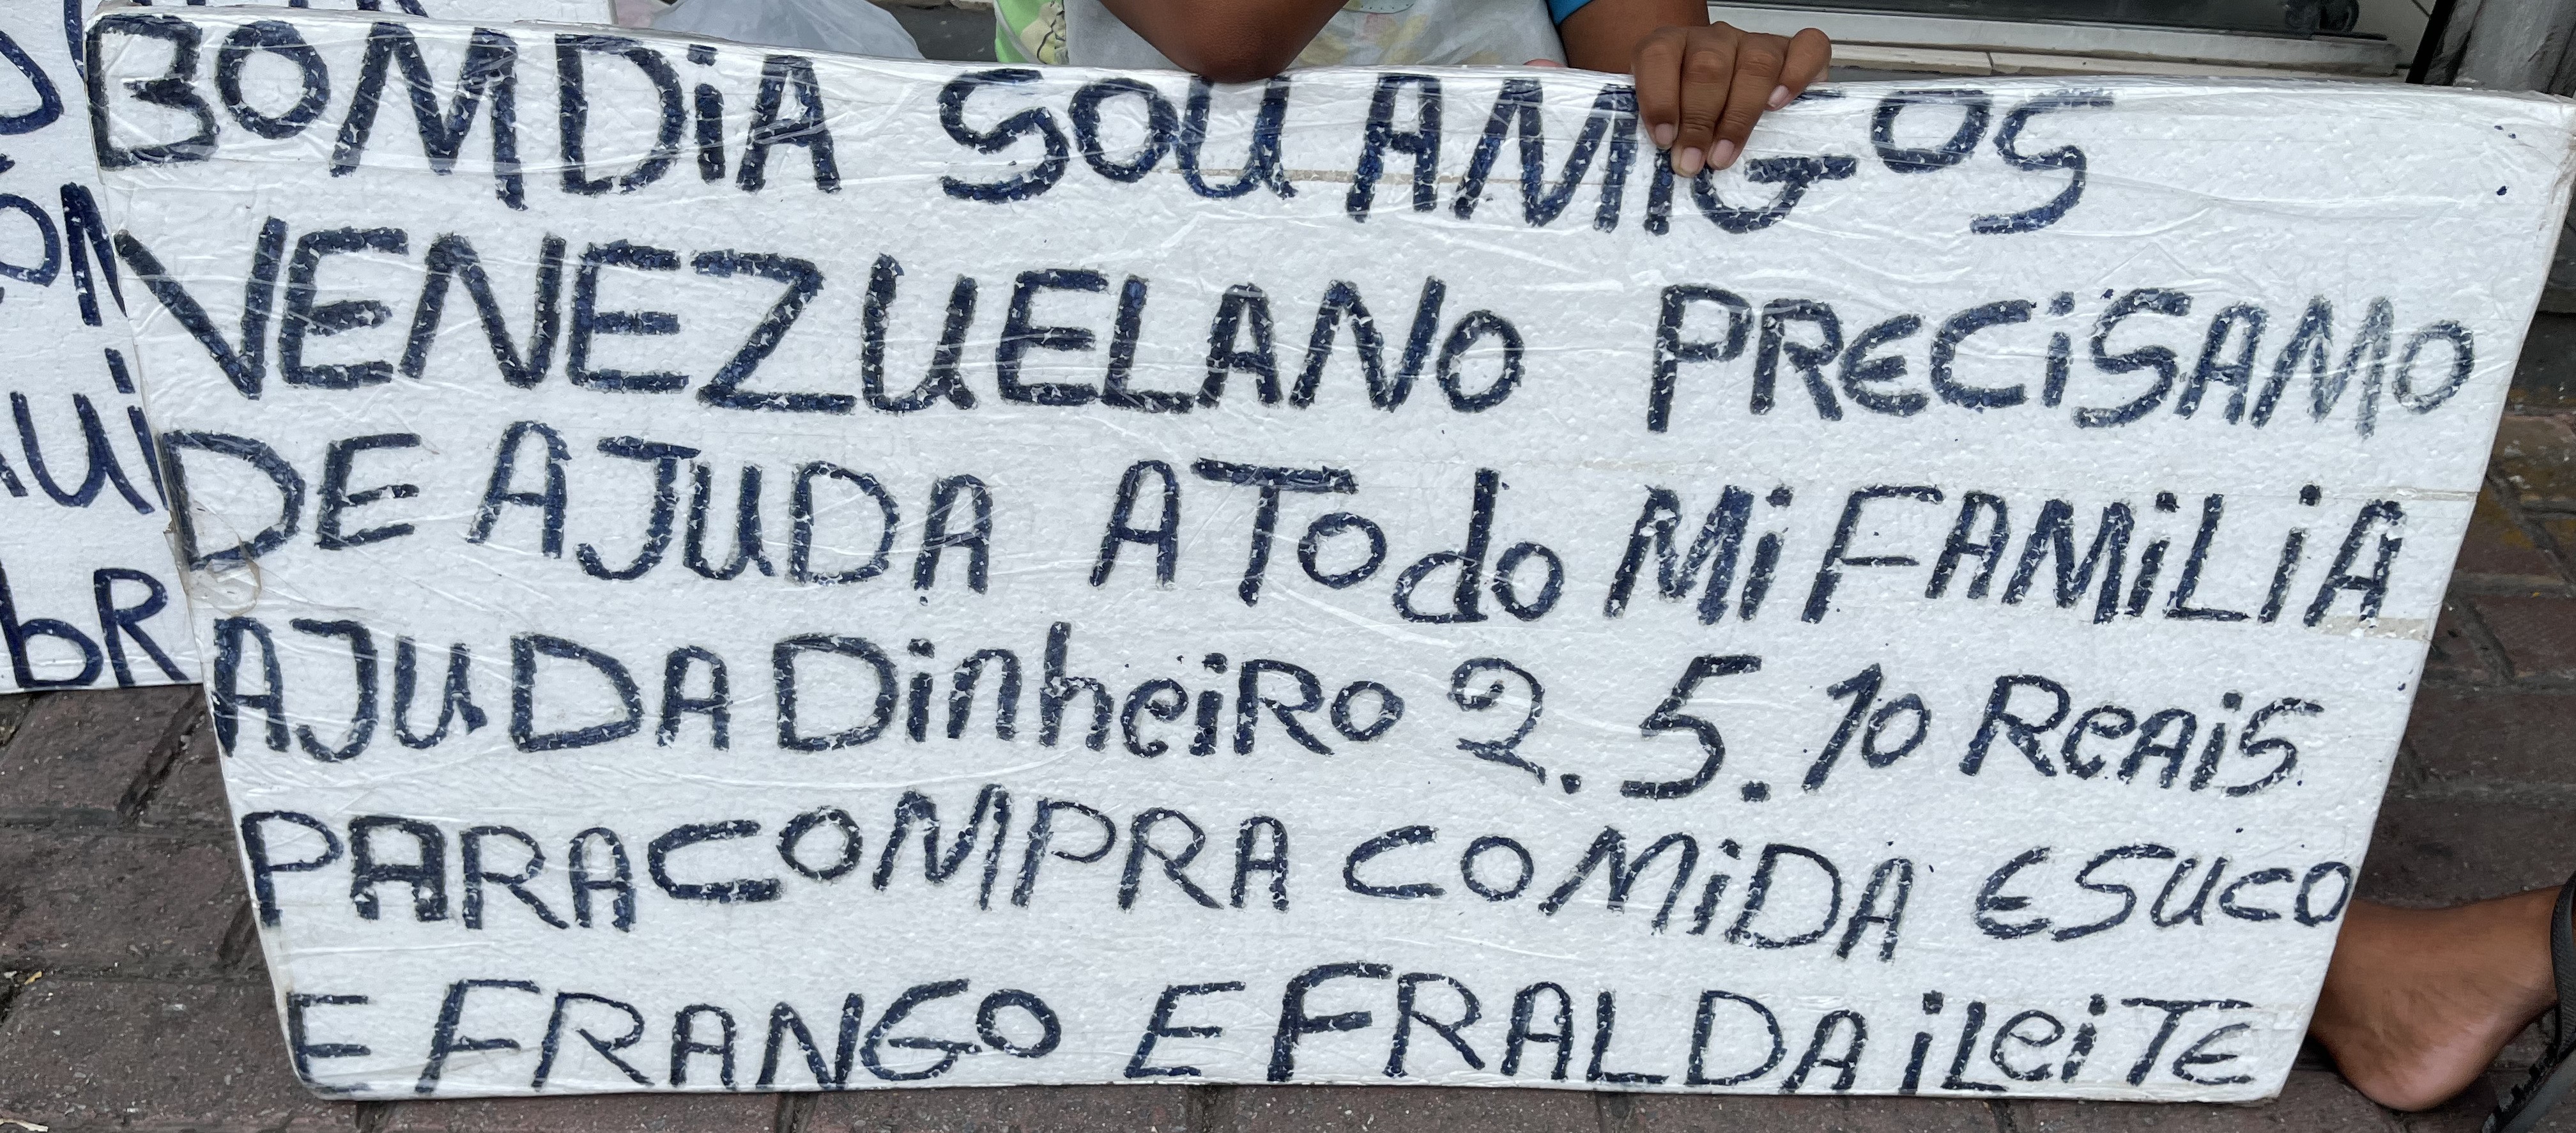 BOM DiA SOU AMiGOS
VENEZUELANO PRECiSAMO
DE AJUDA A Todo Mi FAMiLiA
AJUDA DinheiRo 2.5.10 ReAiS
PARA COMPRA COMiDA E SUCO
E FRANGO E FRALDA i LeiTE